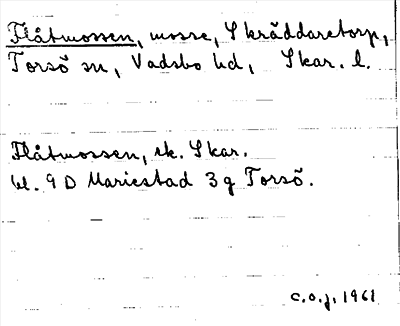 Flåtmossen, mosse, Skräddaretorp,
Torsö sn, Vadsbo hd, Skar. l.
Flåtmossen, ek. Skar.
bl. 9 D Mariestad 3 g Torsö.
C.O.J. 1961